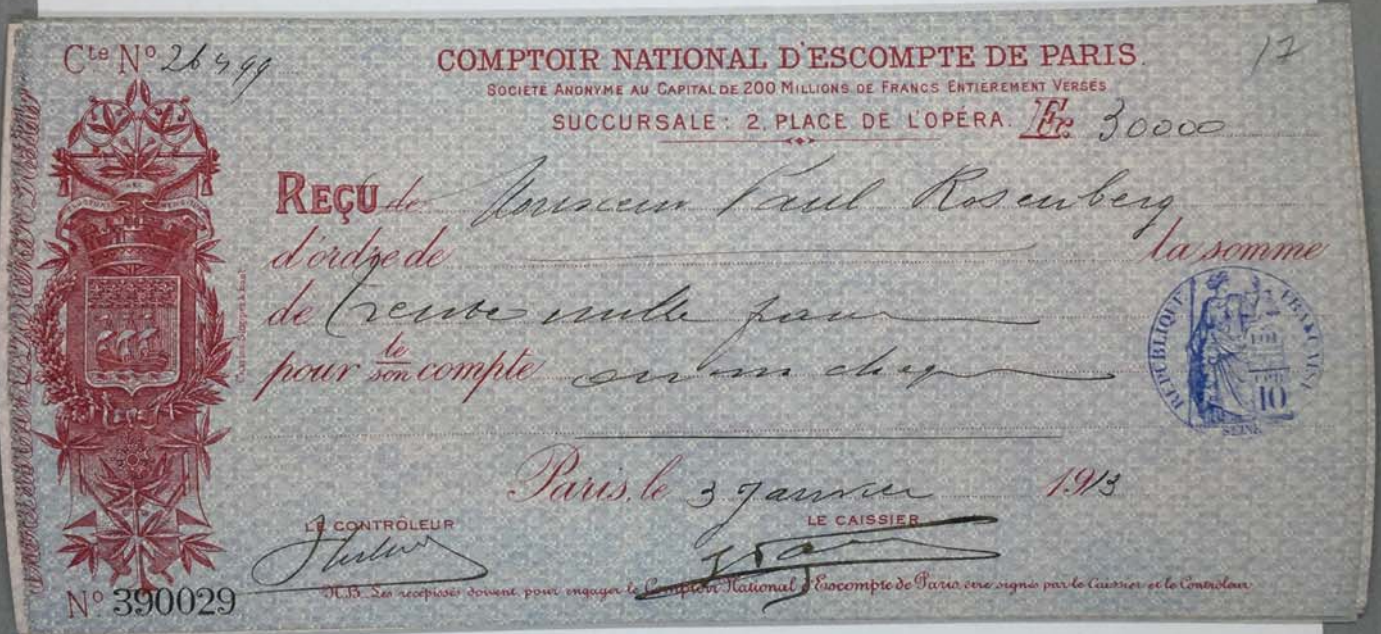 Cte No 26499
COMPTOIR NATIONAL D'ESCOMPTE DE PARIS
17
SOCIÉTÉ ANONYME AU CAPITAL DE 200 MILLIONS DE FRANCS ENTIÈREMENT VERSÉS
SUCCURSALE: 2, PLACE DE L'OPÉRA. Fr. 30000
REÇU de Monsieur Paul Rosenberg
d'ordre de la somme
de trente mille francs
pour le/son compte en un chèque
RÉPUBLIQUE FRANÇAISE
10
SEINE
Paris, le 3 Janvier 1913
LE CONTRÔLEUR LE CAISSIER
No 390029
N.B. Les récépissés doivent, pour engager le Comptoir National d'Escompte de Paris, être signés par le Caissier et le Contrôleur